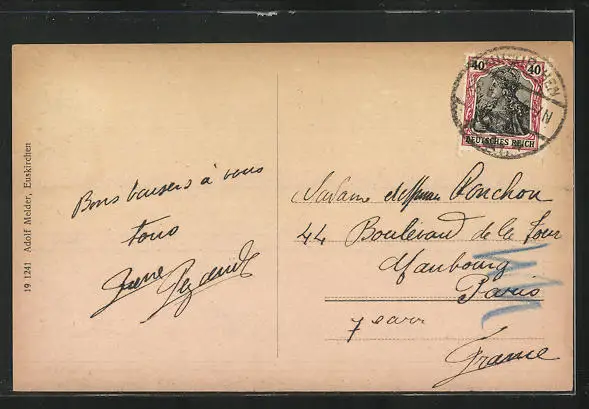 19 1241 Adolf Melder, Euskirchen
Bons baisers à vous
tous
40 40
DEUTSCHES REICH
Madame Ponchon
44 Boulevard de la Tour
Maubourg
Paris
7
France